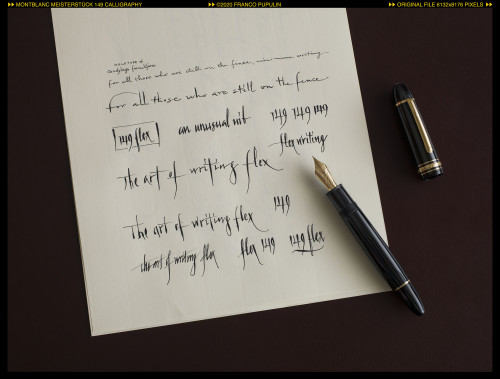 ▸▸ MONTBLANC MEISTERSTÜCK 149 CALLIGRAPHY ▸▸ ©2020 FRANCO PUPULIN ▸▸ ORIGINAL FILE 8132x6176 PIXELS ▸▸
for all those who are still on the fence, writing
for all those who are still on the fence
149 flex an unusual nib 149 149 149
flex writing
The art of writing flex
149
The art of writing flex
the art of writing flex flex 149 149 flex